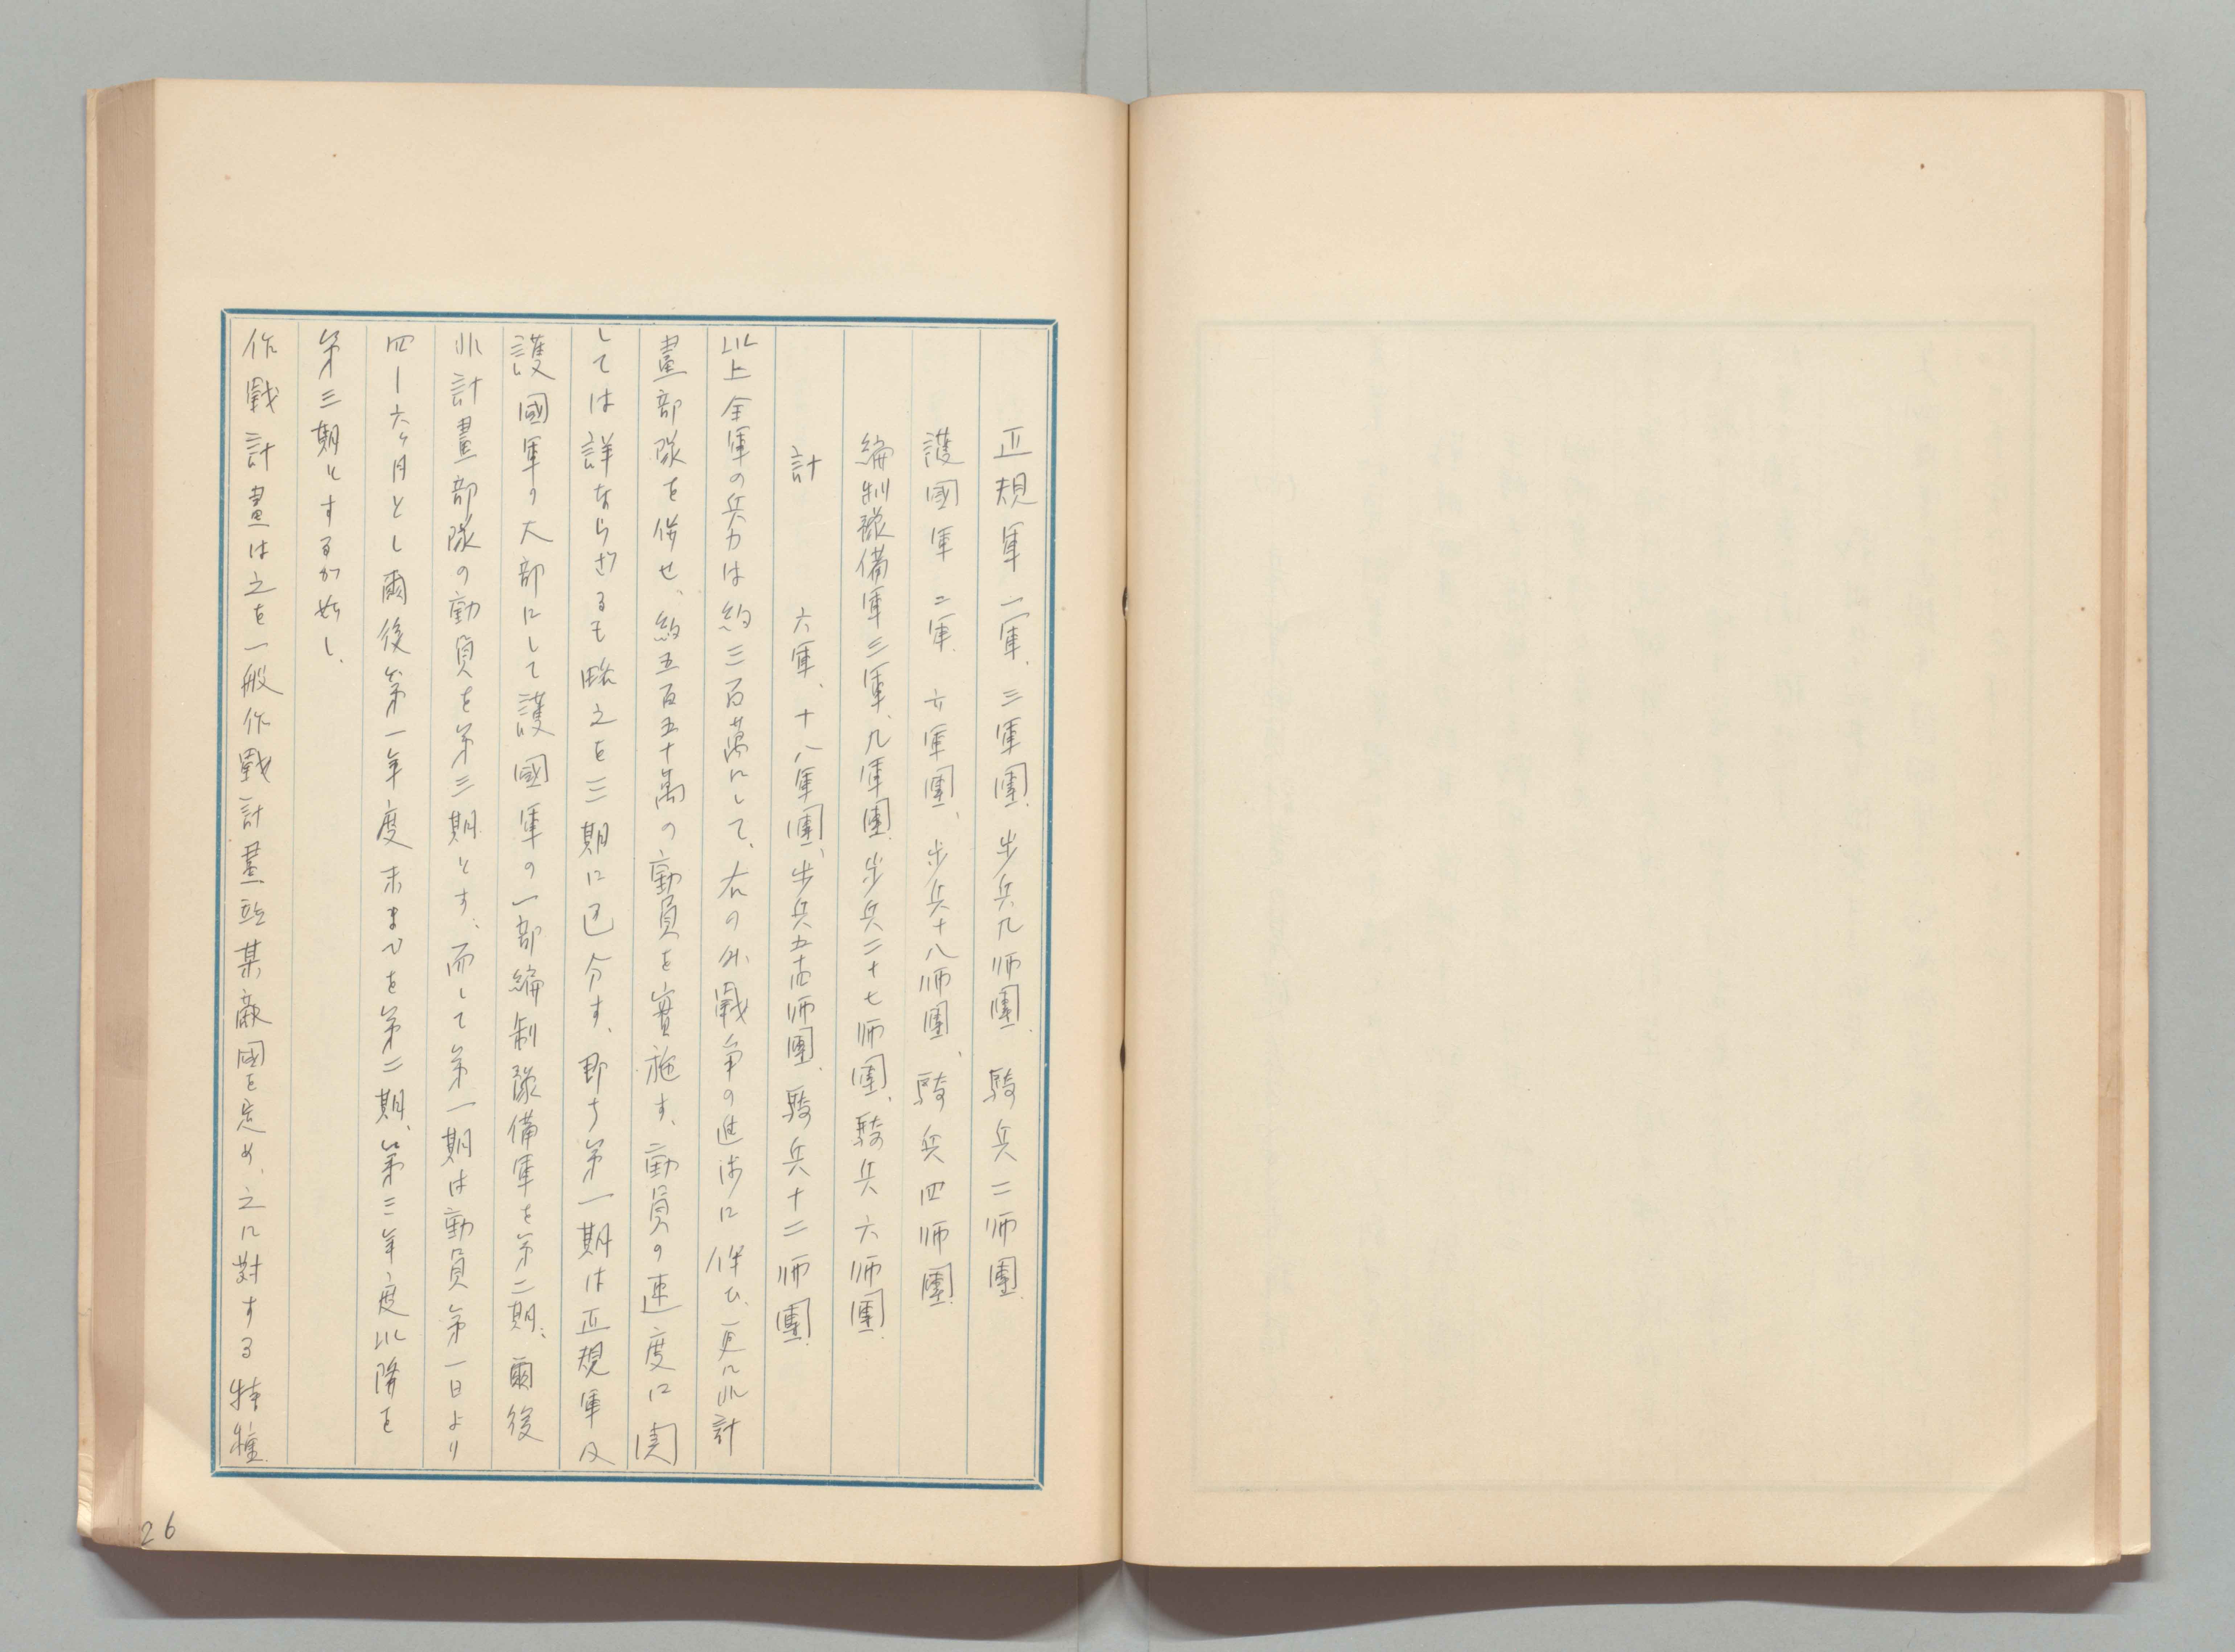 正規軍 一軍、三軍團、步兵九師團、騎兵二師團、
護國軍 二軍、六軍團、步兵十八師團、騎兵四師團、
編制豫備軍 三軍、九軍團、步兵二十七師團、騎兵六師團、
計 六軍、十八軍團、步兵五十四師團、騎兵十二師團、
以上全軍の兵力は約三百萬にして、右の外戰爭の進涉に伴ひ、更に非計
畫部隊を併せ、約五百五十萬の動員を實施す、動員の速度に関
しては詳ならざるも略之を三期に区分す、即ち第一期は正規軍及
護國軍の大部にして護國軍の一部編制豫備軍を第二期、爾後
非計畫部隊の動員を第三期とす、而して第一期は動員第一日より
四—六ヶ月とし爾後第一年度末までを第二期、第三年度以降を
第三期とするが如し、
作戰計畫は之を一般作戰計畫並某敵國を定め、之に対する特種
26